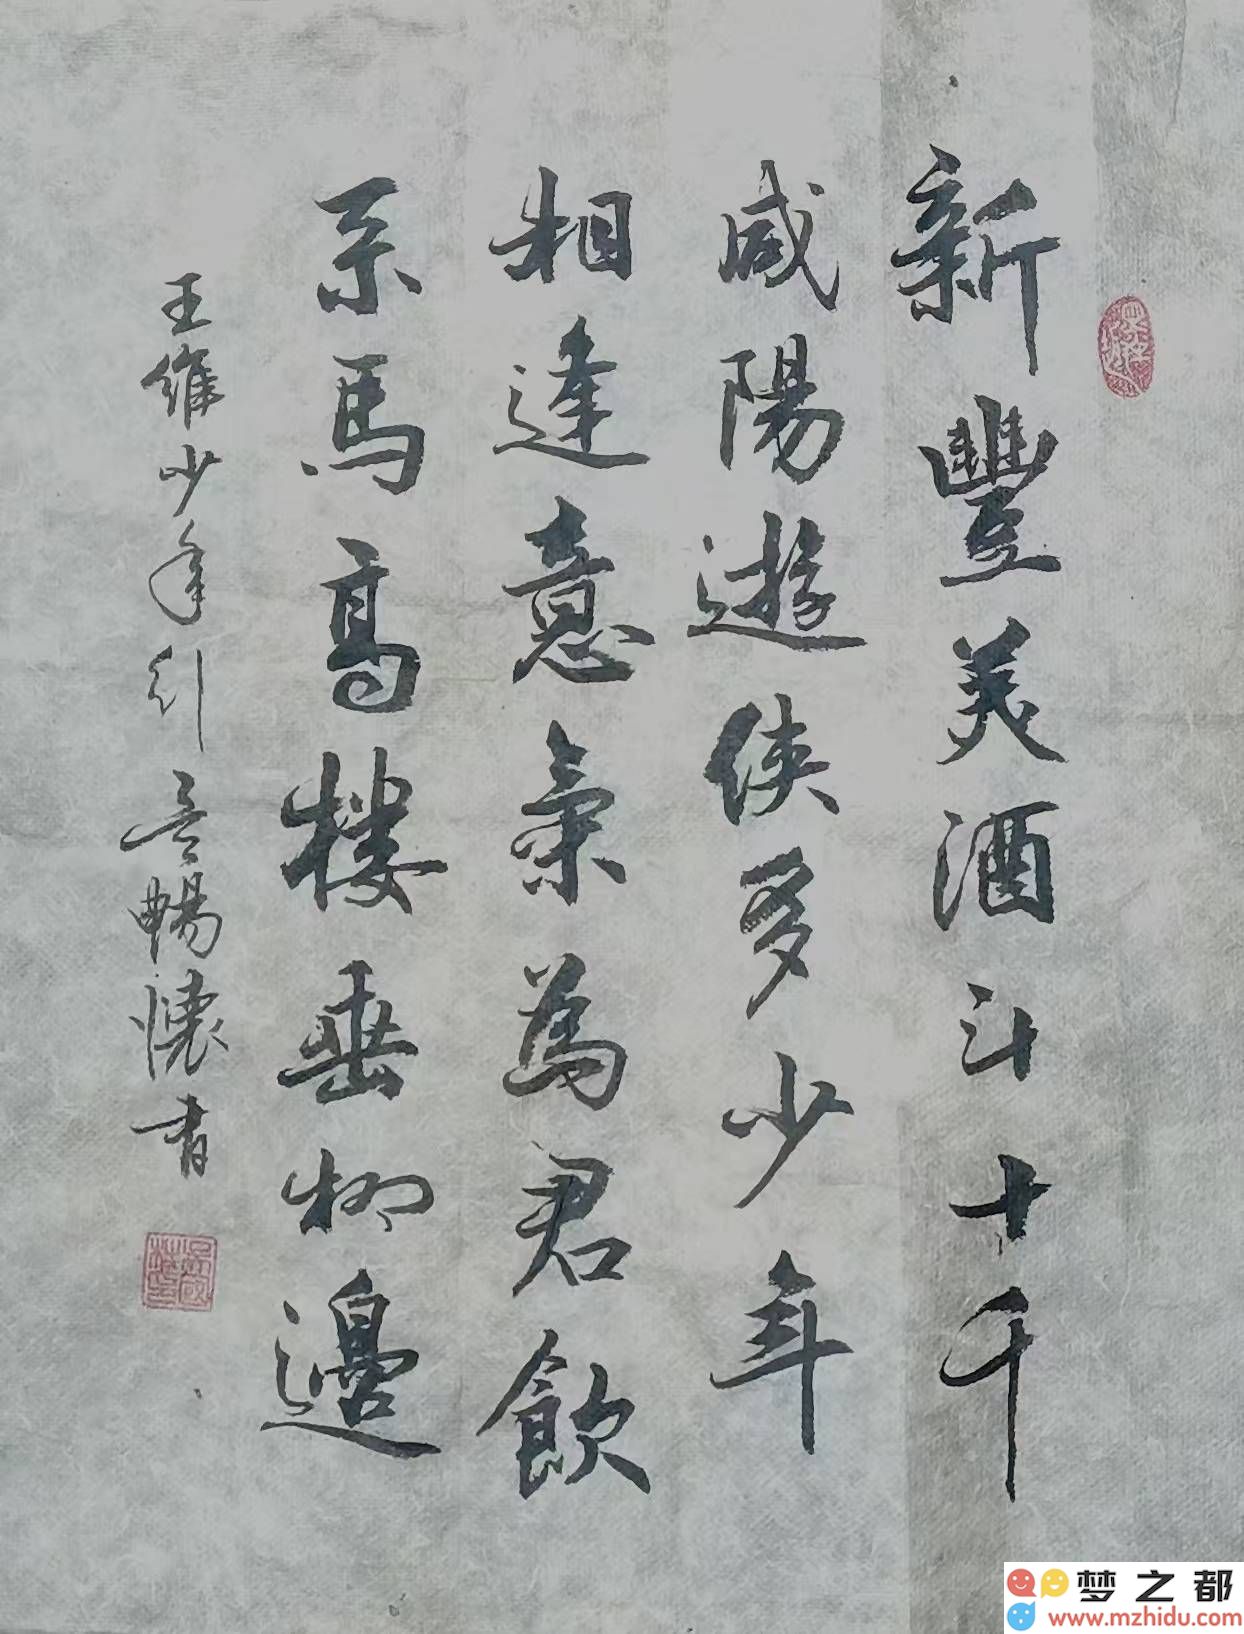 新豐美酒斗十千
咸陽遊侠多少年
相逢意氣為君飲
系馬高楼垂柳邊
王維少年行 吴暢懷書
梦之都
www.mzhidu.com